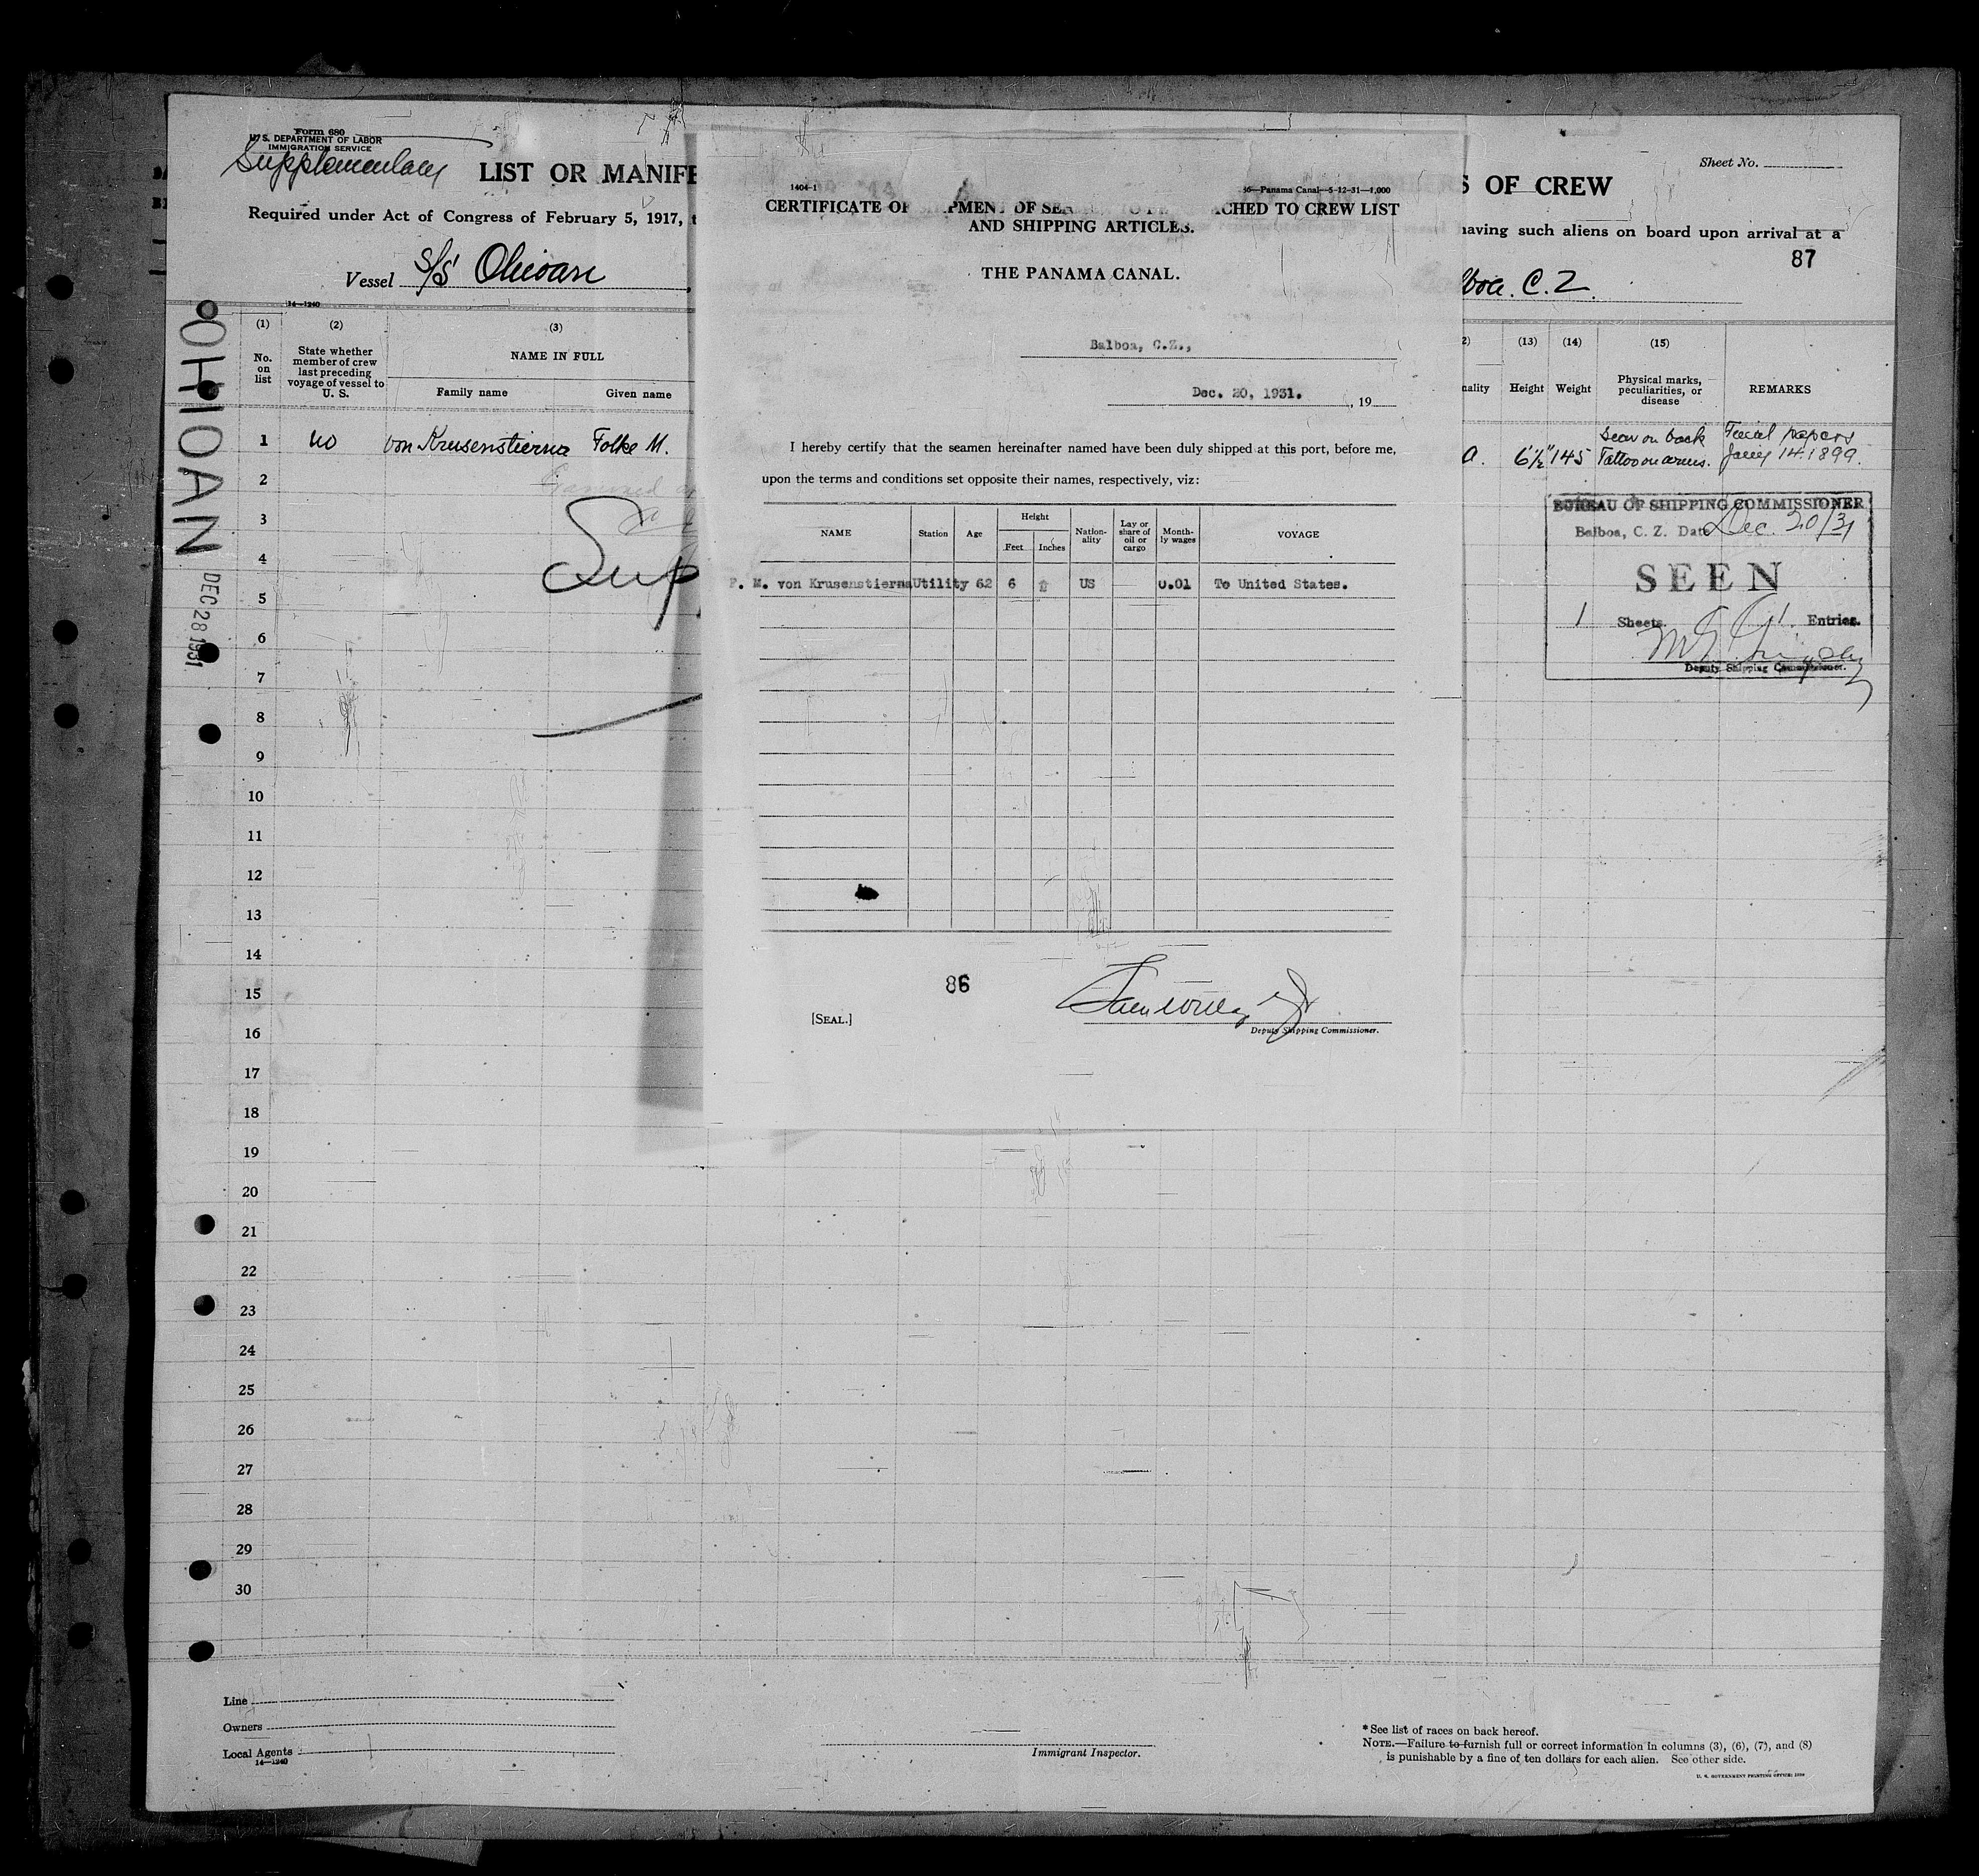 Form 680
U. S. DEPARTMENT OF LABOR
IMMIGRATION SERVICE
Supplementary LIST OR MANIFE
Required under Act of Congress of February 5, 1917, t
Vessel S/S Ohioan
14—1240
(1) (2) (3)
No. on list
State whether member of crew last preceding voyage of vessel to U. S.
NAME IN FULL
Family name Given name
1 no von Krusenstierna Folke M.
2
3
4
5
6
7
8
9
10
11
12
13
14
15
16
17
18
19
20
21
22
23
24
25
26
27
28
29
30
OHIOAN DEC 28 1931
Sup
1404-1
—Panama Canal—5-12-31—1,000
CERTIFICATE OF PMENT OF SEA CHED TO CREW LIST
AND SHIPPING ARTICLES.
THE PANAMA CANAL.
Balboa, C.Z.,
Dec. 20, 1931. , 19
I hereby certify that the seamen hereinafter named have been duly shipped at this port, before me,
upon the terms and conditions set opposite their names, respectively, viz:
NAME Station Age Height Feet Inches Nation-ality Lay or share of oil or cargo Month-ly wages VOYAGE
F. M. von Krusenstierna Utility 62 6 US 0.01 To United States.
86
[SEAL.]
Deputy Shipping Commissioner.
Sheet No.
S OF CREW
having such aliens on board upon arrival at a
87
boa. C. Z.
2) (13) (14) (15)
nality Height Weight Physical marks, peculiarities, or disease REMARKS
a. 6'½" 145 Scar on back Tattoo on arms. papers 14.1899.
BUREAU OF SHIPPING COMMISSIONER
Balboa, C. Z. Date Dec. 20/31
SEEN
1 Sheets. 1. Entries.
Deputy Shipping Commissioner.
Line
Owners
Local Agents
14—1240
Immigrant Inspector.
* See list of races on back hereof.
NOTE.—Failure to furnish full or correct information in columns (3), (6), (7), and (8)
is punishable by a fine of ten dollars for each alien. See other side.
U. S. GOVERNMENT PRINTING OFFICE: 1930